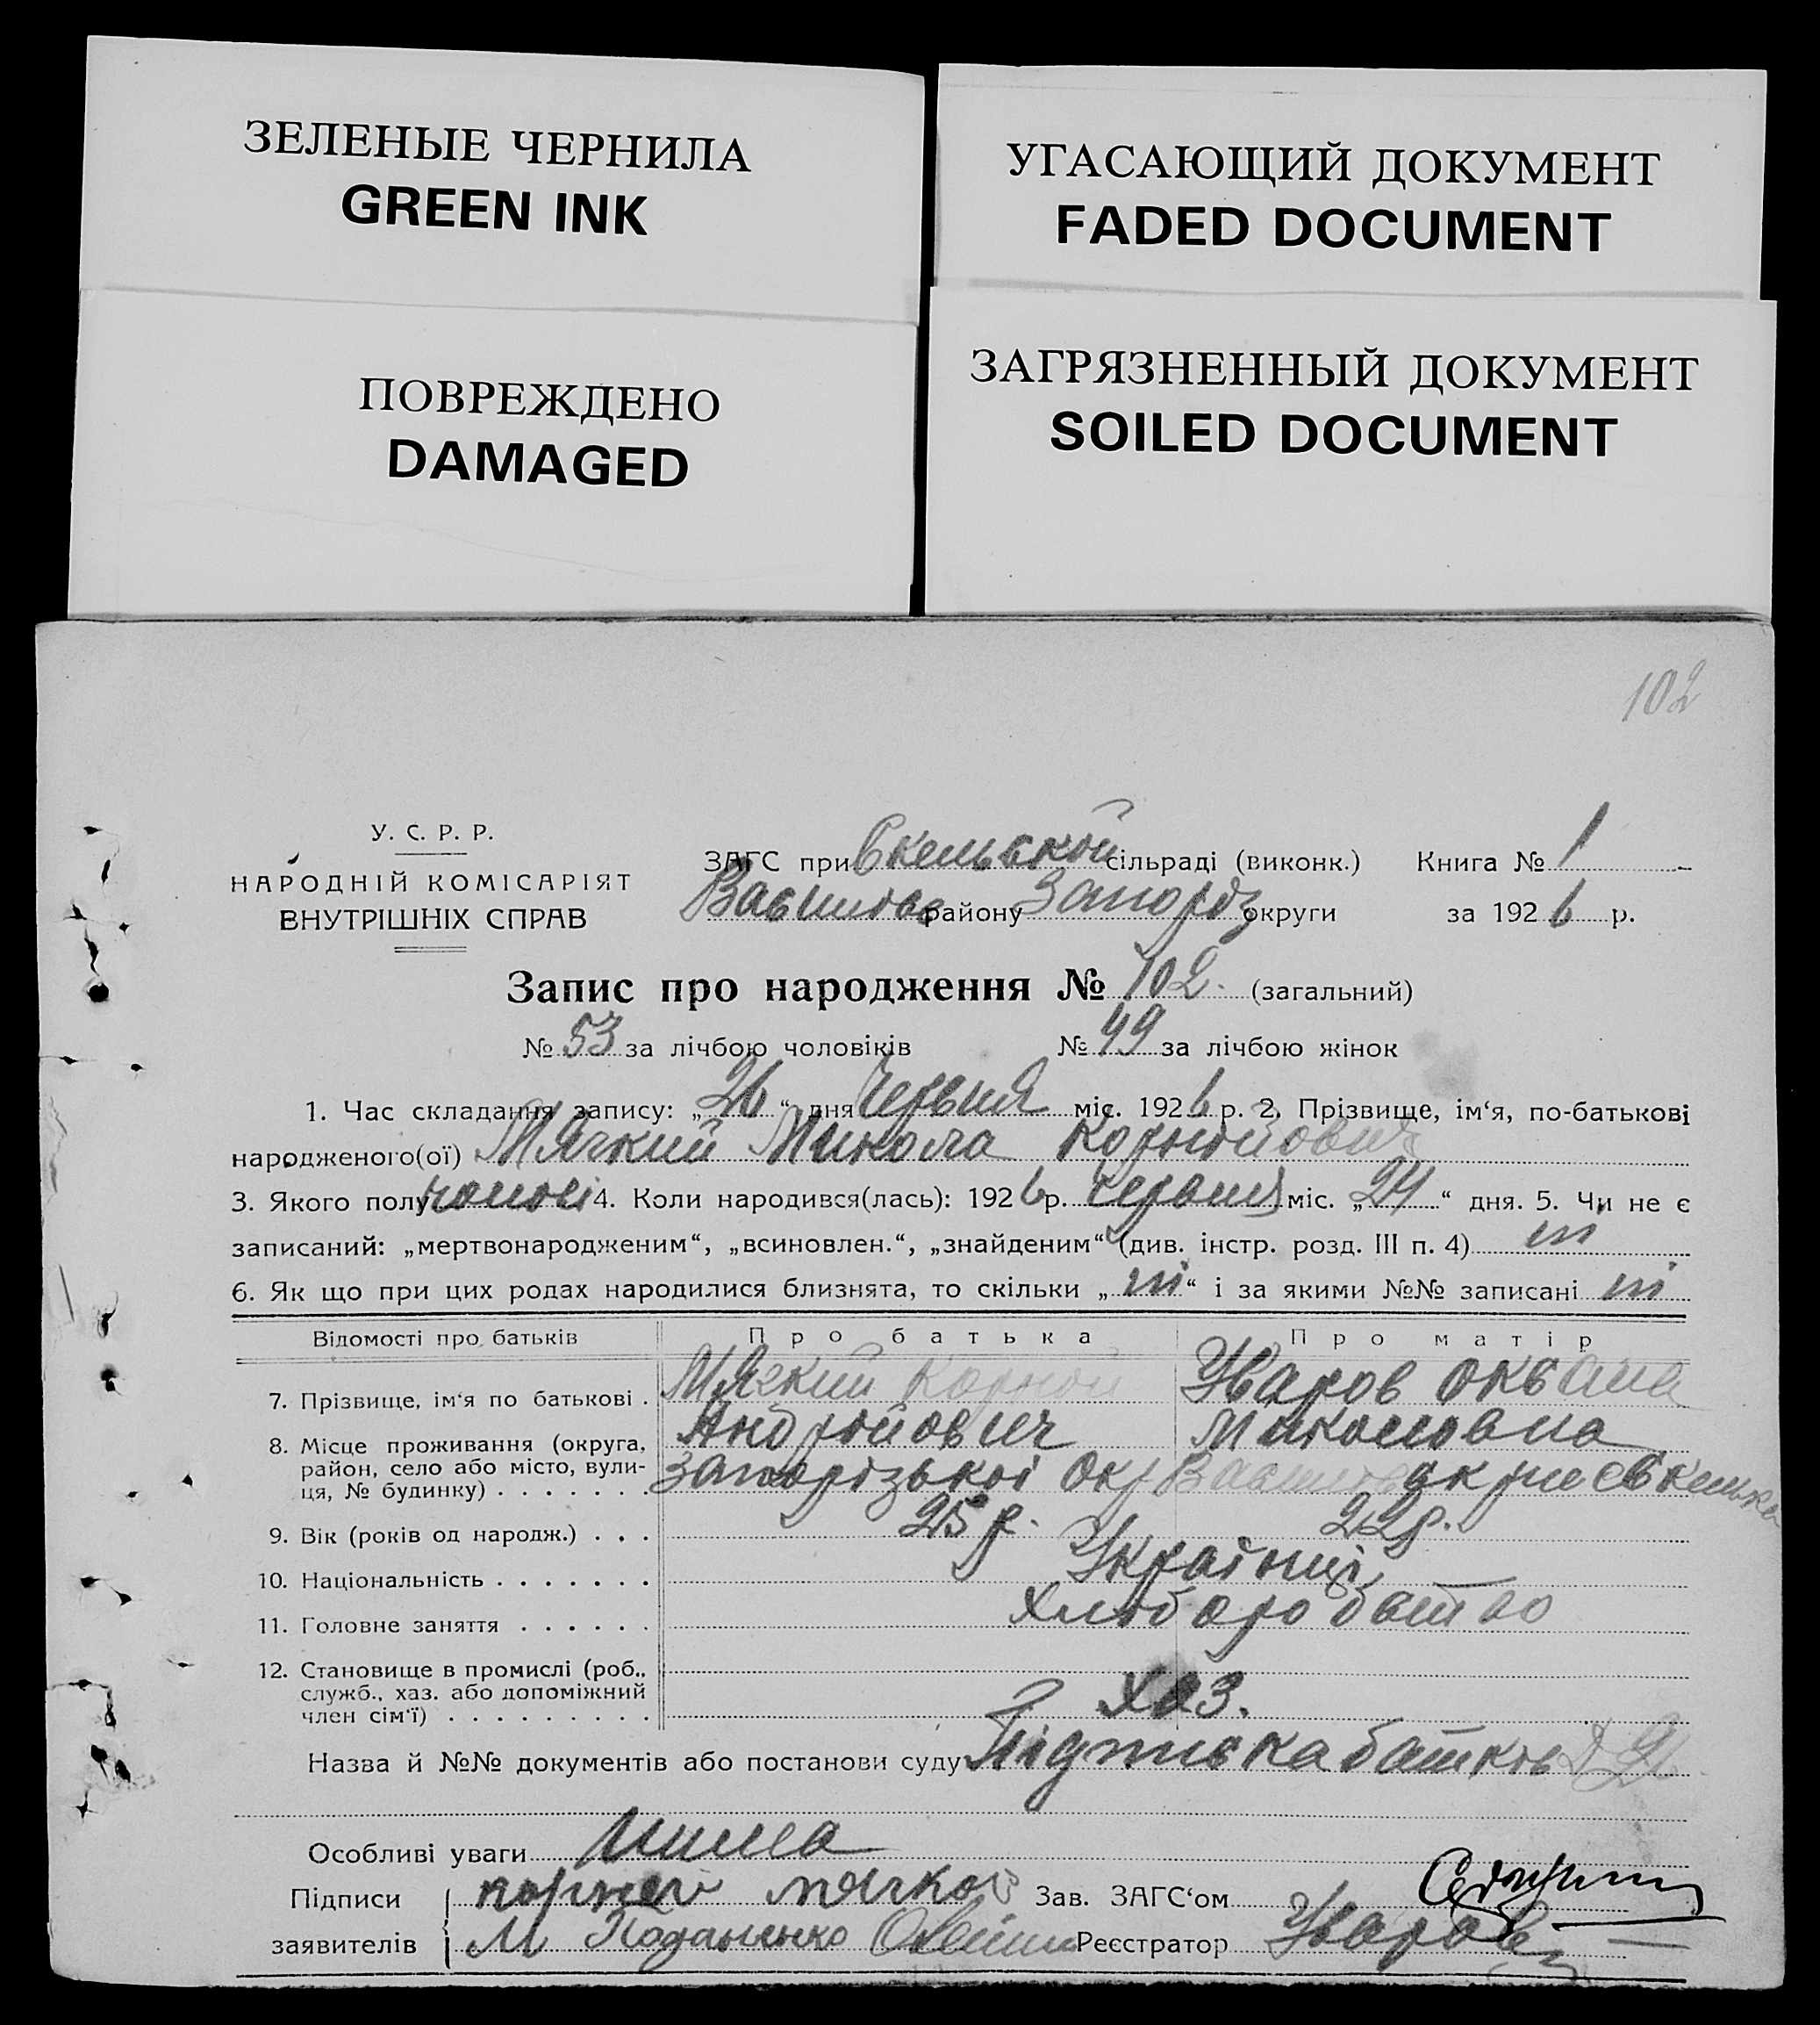 ЗЕЛЕНЫЕ ЧЕРНИЛА
GREEN INK
УГАСАЮЩИЙ ДОКУМЕНТ
FADED DOCUMENT
ПОВРЕЖДЕНО
DAMAGED
ЗАГРЯЗНЕННЫЙ ДОКУМЕНТ
SOILED DOCUMENT
102
У. С. Р. Р.
НАРОДНІЙ КОМІСАРІЯТ
ВНУТРІШНІХ СПРАВ
ЗАГС при Скельской сільраді (виконк.) Книга № 1
району Запоріз округи за 1926 р.
Запис про народження № 102. (загальний)
№ 53 за лічбою чоловіків № 49 за лічбою жінок
1. Час складання запису: „26“ дня червня міс. 1926 р. 2. Прізвище, ім‘я, по-батькові
народженого(ої) Мягкий Микола Корнійович
3. Якого полу чолові 4. Коли народився(лась): 1926 р. червня міс. „24“ дня. 5. Чи не є
записаний: „мертвонародженим“, „всиновлен.“, „знайденим“ (див. інстр. розд. III п. 4) ні
6. Як що при цих родах народилися близнята, то скільки „ні“ і за якими №№ записані ні
Відомості про батьків Про батька Про матір
7. Прізвище, ім‘я по батькові . Мягкий Корній Уваров Оксана
Андрійович Миколовна
8. Місце проживання (округа, район, село або місто, вули-ця, № будинку) . . . . . . . Запорізької Окр
9. Вік (років од народж.) . . . 25 р. 22 р.
10. Національність . . . . . . . Українці
11. Головне заняття . . . . . . Хліборобство
12. Становище в промислі (роб., служб., хаз. або допоміжний член сім‘ї) . . . . . . . . . Хаз.
Назва й №№ документів або постанови суду Підписка батьків
Особливі уваги Нима
Підписи заявителів корней мягкой Зав. ЗАГС‘ом
М Реєстратор Уваров